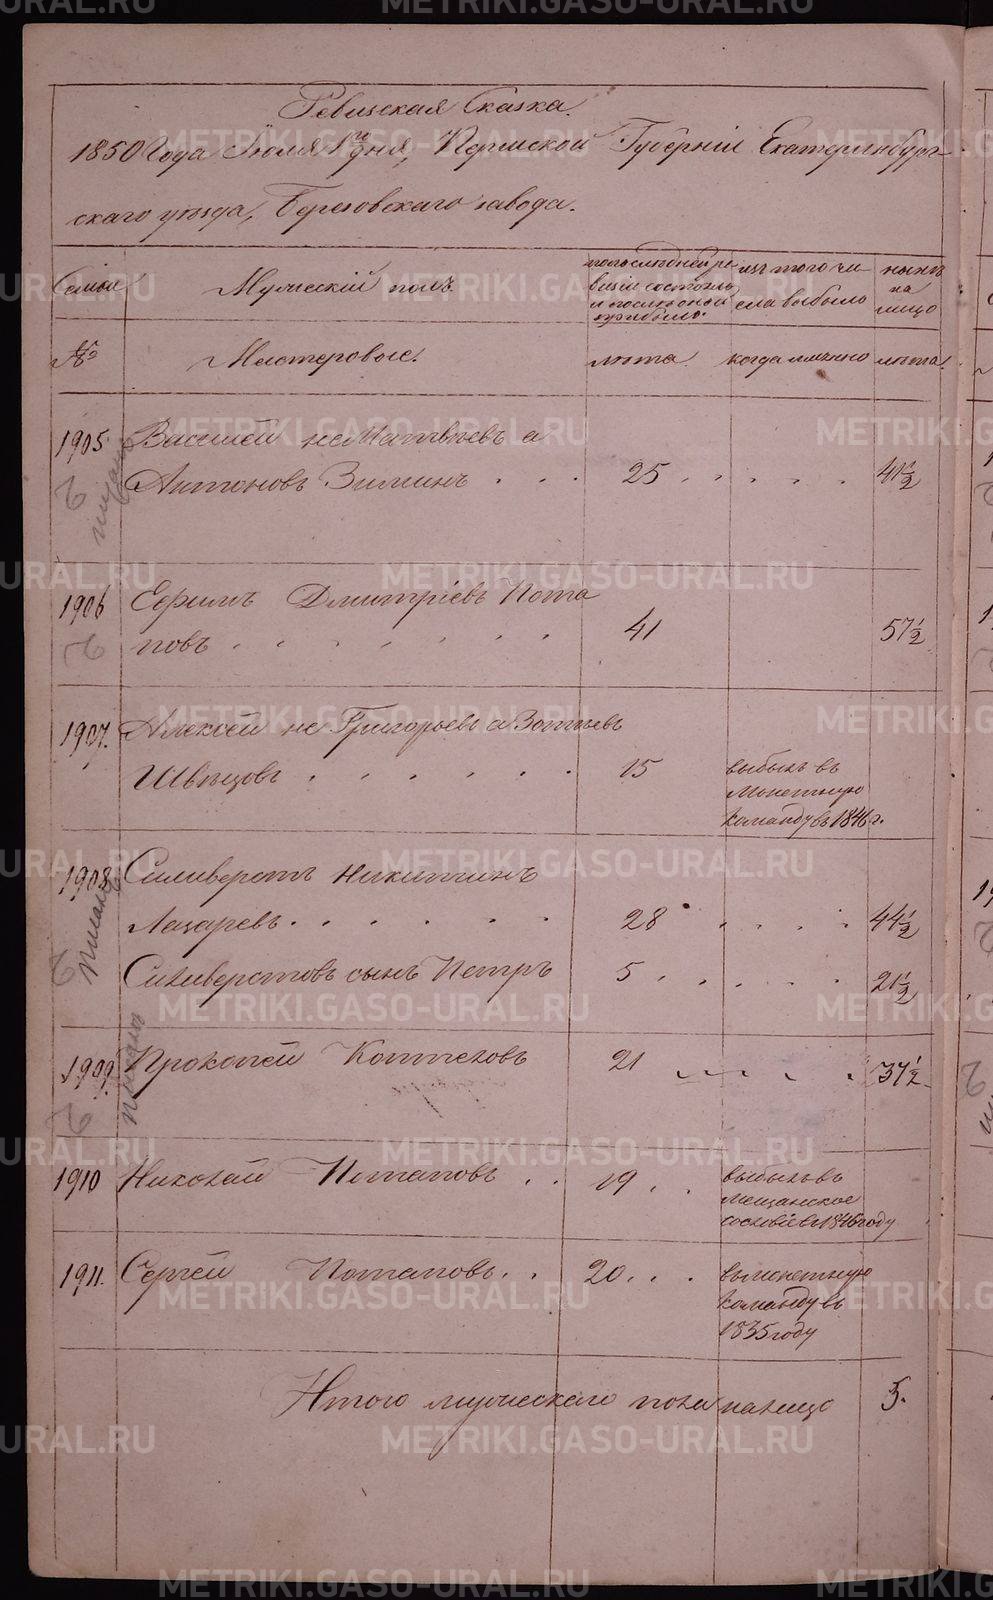 Ревизская Сказка.
1850 Года Июля 1го дня, Пермской Губерніи Екатеринбург-
скаго уезда, Березовскаго завода.
Семьи
Мужескій полъ.
по последней ре-
визіи состояло
и после оной
прибыло.
изъ того чи-
сла выбыло
ныне
на
лицо
№
Мастеровые.
лета
когда именно
лета.
1905
Василей не Матвеевъ а
Антоновъ Зиминъ . . . 25 . . . . . 41 1/2
1906
Ефимъ Дмитріевъ Пота
повъ . . . . . . . 41 57 1/2
1907.
Алексей не Григорьевъ а Зотеевъ
Швецовъ . . . . . . . 15
выбылъ въ
Монетную
команду въ 1846 г.
1908
Силиверстъ Никитинъ
Лазаревъ . . . . . . 28 . . . . 44 1/2
Силиверстовъ сынъ Петръ 5 . . . . . 21 1/2
1909
Прокопей Котеховъ 21 . . . . . 37 1/2
1910
Николай Потаповъ . . 19 . .
выбылъ въ
мещанское
сословіе въ 1846 году
1911.
Сергей Потаповъ . . 20 . . .
въ монетную
команду въ
1835 году
Итого мужескаго пола налицо 5.
METRIKI.GASO-URAL.RU